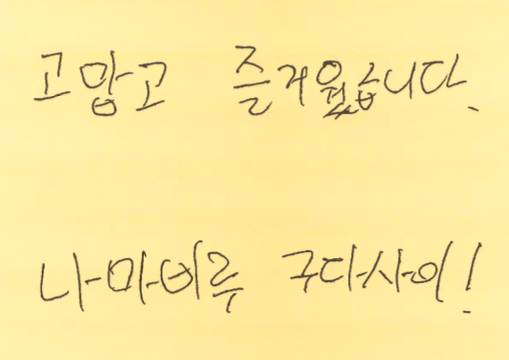 고맙고 즐거웠습니다.
나마비루 구다사이!